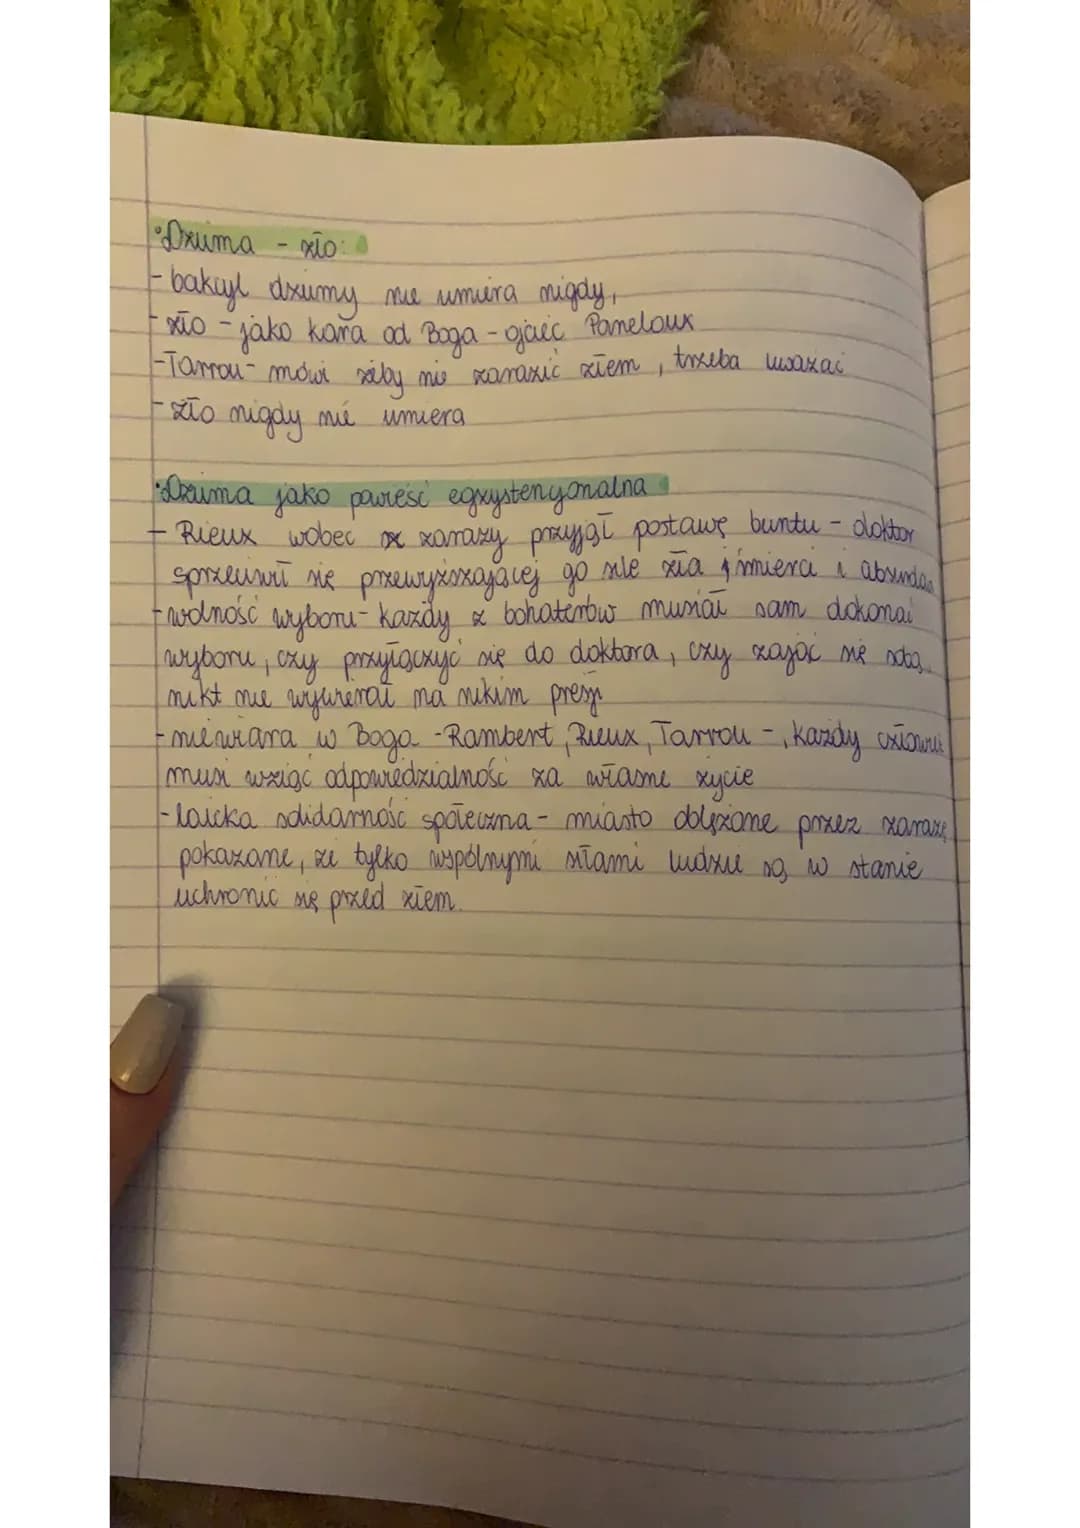 •Dżuma - zło:
- bakcyl dżumy nie umiera nigdy,
- zło - jako kara od Boga - ojciec Paneloux
- Tarrou - mówi żeby nie zarazić złem, trzeba uważać
- zło nigdy nie umiera
•Dżuma jako powieść egzystencjonalna
- Rieux wobec zarazy przyjął postawę buntu - doktor
sprzeciwił się przewyższającej go sile zła śmierci i absurdau
- wolność wyboru - każdy z bohaterów musiał sam dokonać
wyboru, czy przyłączyć się do doktora, czy zająć się sobą
nikt nie wywierał na nikim presji
- niewiara w Boga - Rambert, Rieux, Tarrou -, każdy człowiek
musi wziąć odpowiedzialność za własne życie
- laicka solidarność społeczna - miasto oblężone przez zarazę
pokazane, że tylko wspólnymi siłami ludzie są w stanie
uchronić się przed złem.